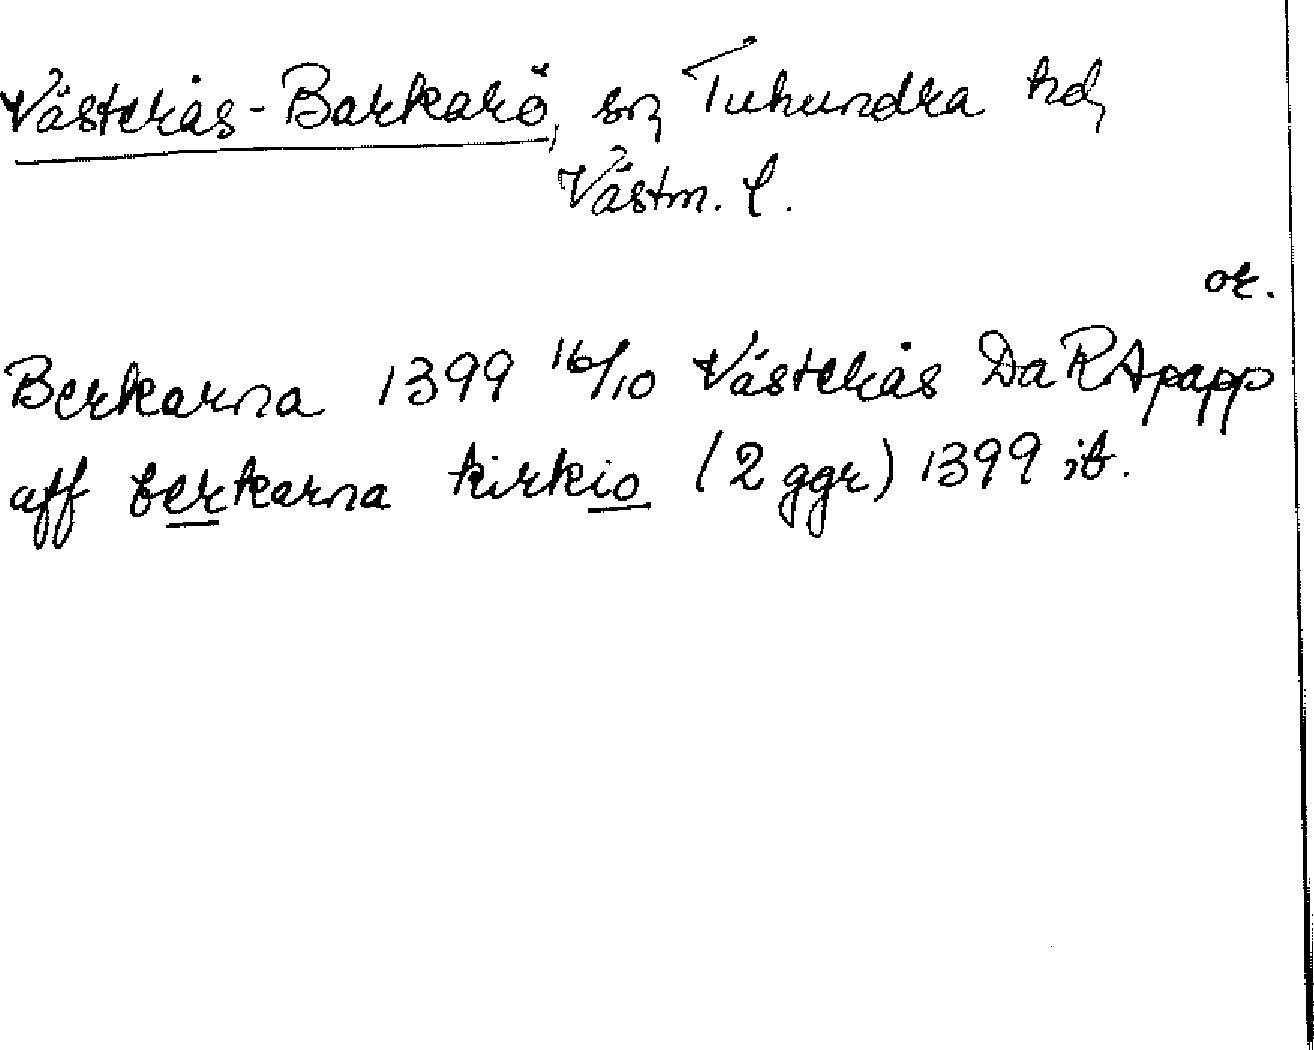 Västerås-Barkarö, sn, Tuhundra hd,
Västm. l.
or.
Berkarna 1399 16/10 Västerås Da RApapp
aff berkarna kirkio (2 ggr) 1399 ib.